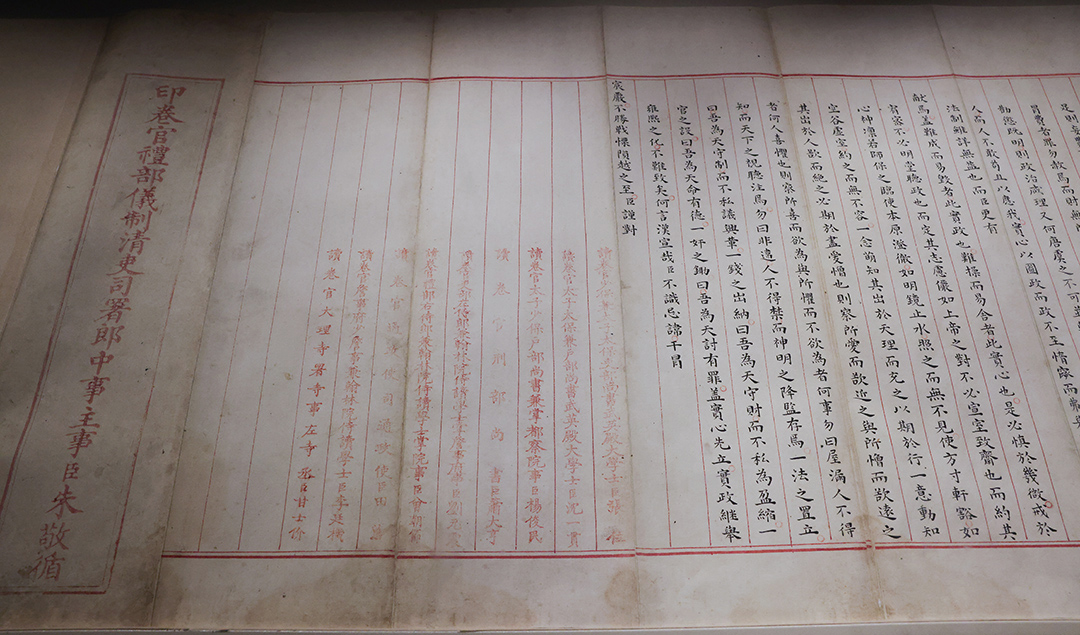 冒費者罪勿赦焉而財無
勸懲既明則政治咸理又何唐虞之不可
人而人不敢苟且以應我實心以圖政而政不至惰窳而
法制雖詳無益也而臣更有
獻焉蓋難成而易毀者此實政也難操而易舍者此實心也是必慎於幾微戒於
宥密不必明堂聽政也而定其志慮儼如上帝之對不必宣室致齋也而約其
心神凜若師保之臨使本原澄徹如明鏡止水照之而無不見使方寸軒豁如
空谷虛室約之而無不容一念萌知其出於天理而充之以期於行一意動知
其出於人欲而絕之必期於盡愛憎也則察所愛而欲近之與所憎而欲遠之
者何人喜懼也則察所喜而欲為與所懼而不欲為者何事勿曰屋漏人不得
知而天下之視聽注焉勿曰非違人不得禁而神明之降監存焉一法之置立
曰吾為天守制而不私議興革一錢之出納曰吾為天守財而不私為盈縮一
官之設曰吾為天命有德一奸之鋤曰吾為天討有罪蓋實心先立實政繼舉
雍熙之化不難致矣何言漢宣哉臣不識忌諱干冒
宸嚴不勝戰慄隕越之至臣謹對
讀卷官太保尚書武英殿大學士臣張位
讀卷官太子太保兼戶部尚書武英殿大學士臣沈一貫
讀卷官太子少保戶部尚書兼掌都察院事臣楊俊民
讀卷官刑部尚書臣蕭大亨
讀卷官侍郎兼翰林院侍讀學士掌詹事府事臣劉
讀卷官禮部右侍郎兼翰林院侍讀學士掌院事臣曾朝節
讀卷官通政使司通政使臣田
讀卷官詹事府少詹事兼翰林院侍讀學士臣李廷機
讀卷官大理寺署寺事左寺丞臣甘士价
印卷官禮部儀制清吏司署郎中事主事臣朱敬循